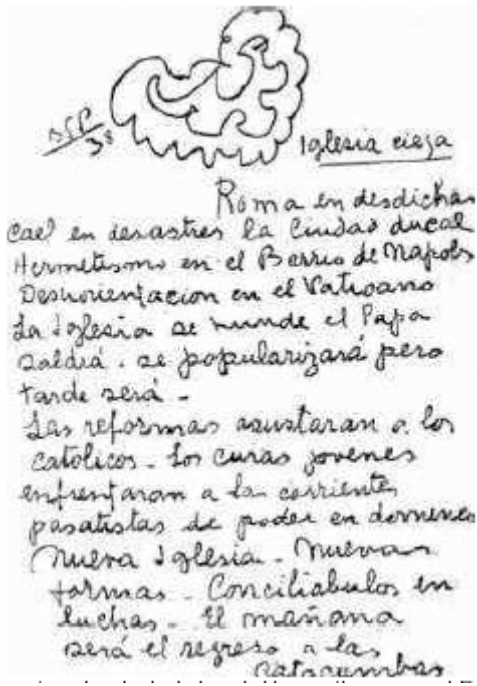 BSP/38
Iglesia ciega
Roma en desdichas
cae en desastres la Ciudad ducal
Hermetismo en el Barrio de Napols
Deshorientacion en el Vaticano
La Iglesia se hunde el Papa
saldrá. se popularizará pero
tarde será -
Las reformas asustaran a los
catolicos - Los curas jovenes
enfrentaran a las corrientes
pasatistas de poder en
Nueva Iglesia - Nuevas
formas - Conciliabulos en
luchas - El mañana
será el regreso a las
catacumbas